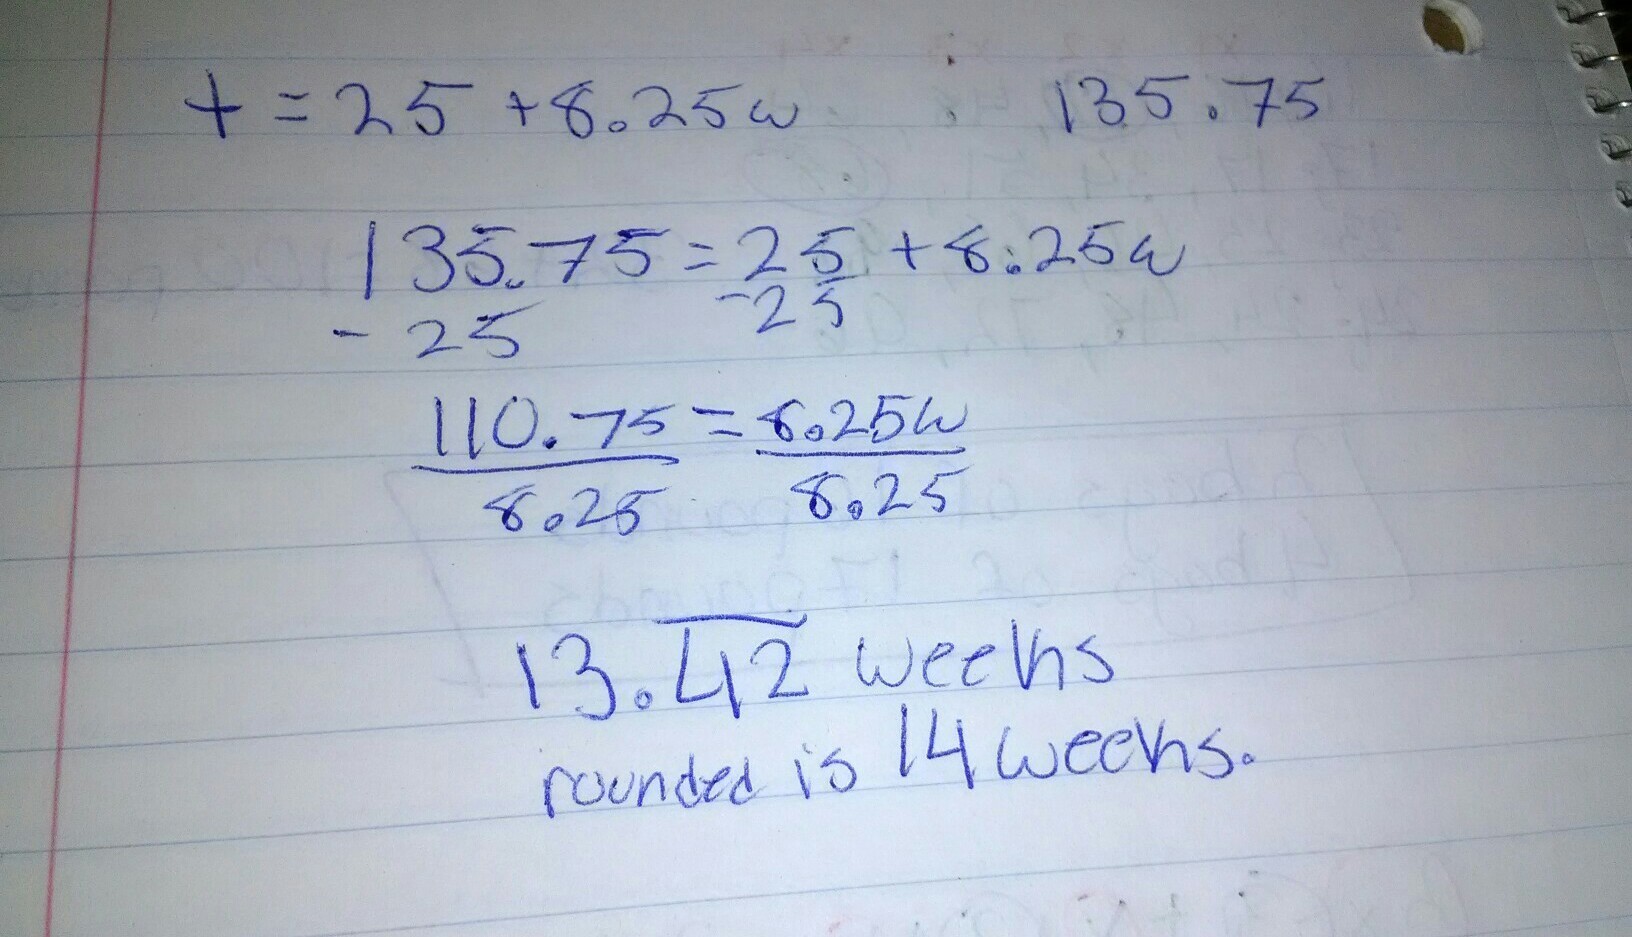 t = 25 + 8.25w 135.75
135.75 = 25 + 8.25w
- 25 -25
110.75 = 8.25w
8.25 8.25
13.4̅2̅ weeks
rounded is 14 weeks.